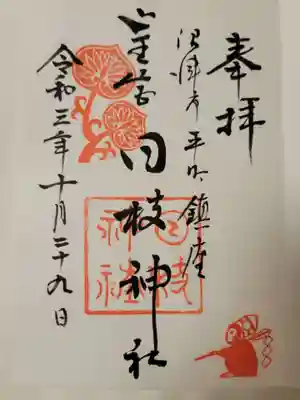 奉拝
沼津市 平町 鎮座
日枝神社
日枝神社
令和三年十月二十九日